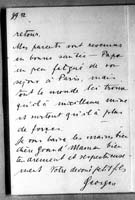 retour.
Mes parents sont revenus
en bonne santé — Papa
un peu fatigué de son
séjour à Paris, mais
tout le monde lui trouve
qu'il a meilleure mine
et surtout qu'il a plus
de forces.
Je vous baise les mains bien
chère Grand' Maman bien
tendrement et respectueuse
ment Votre dévoué petit fils
Georges